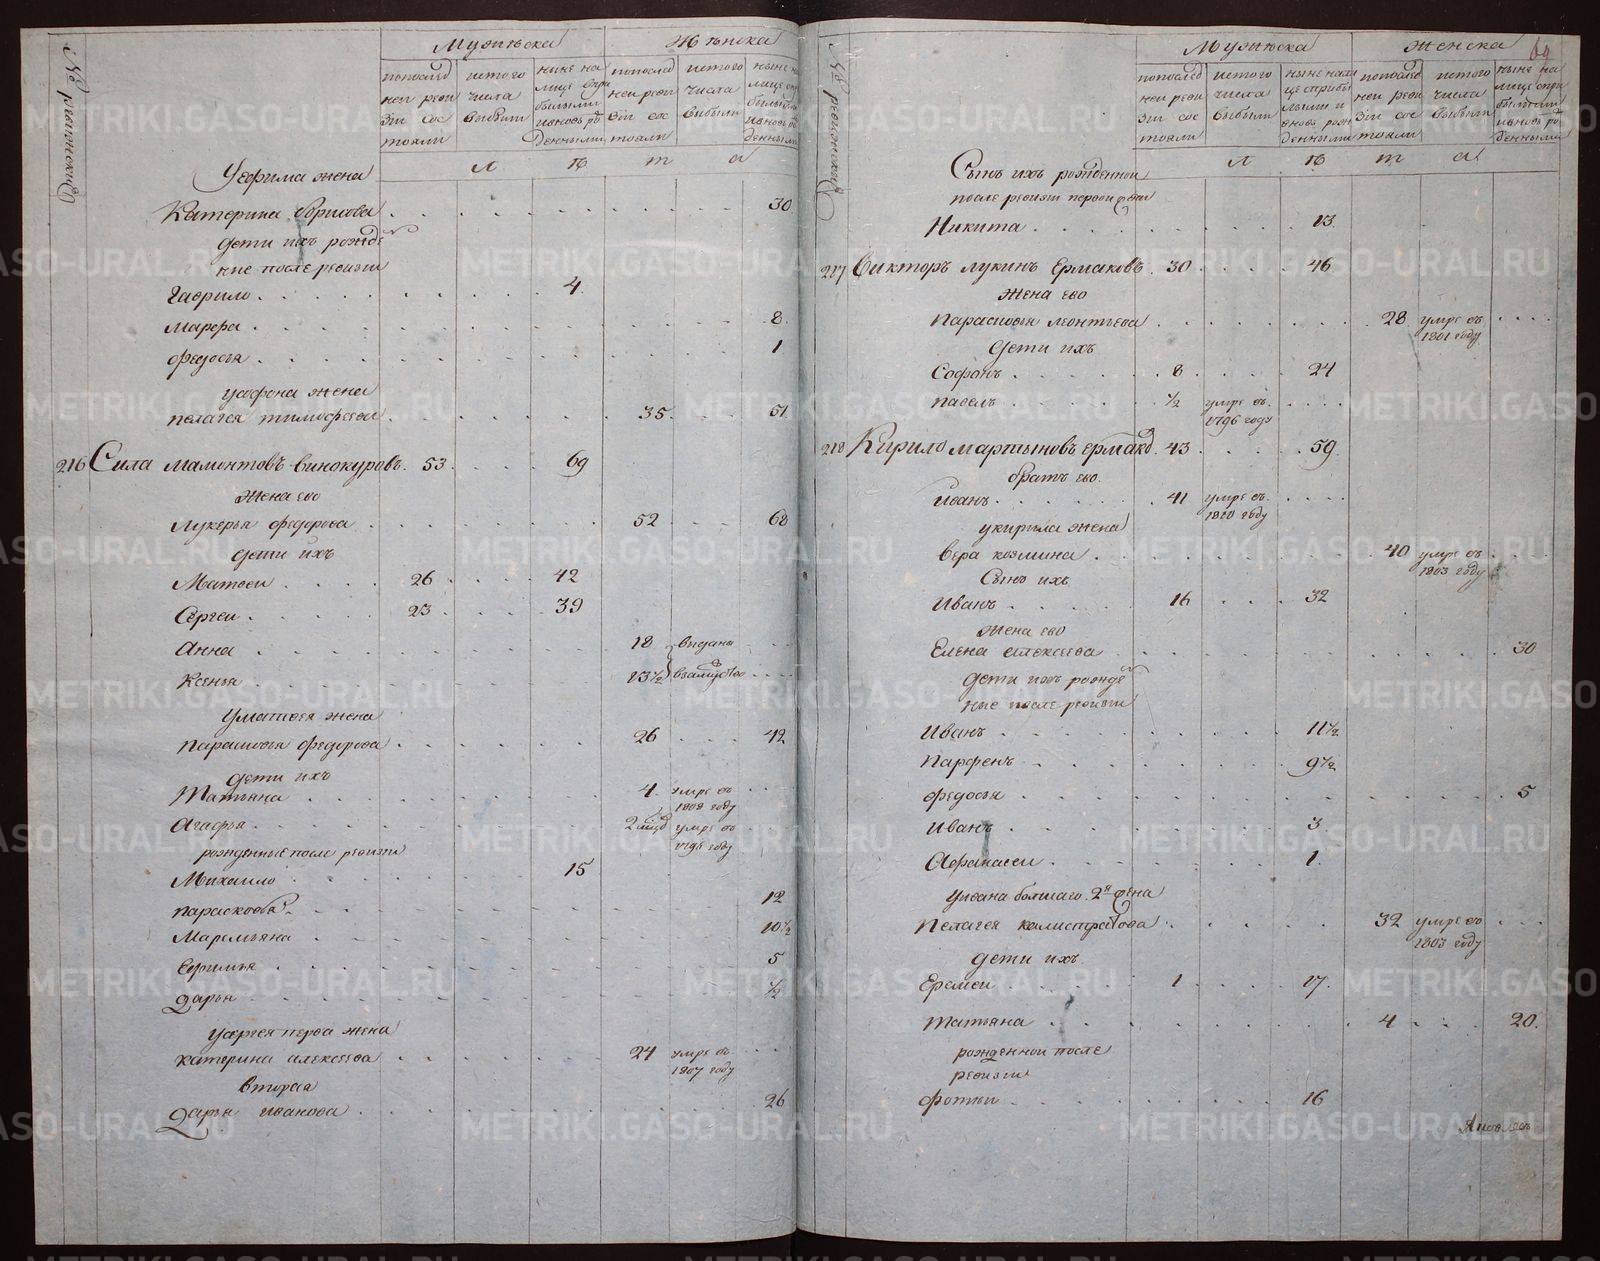 № ревижский
Мужеска
Женска
попослед
ней реви
зіи сос
тояли
ис того
числа
выбыли
ныне на
лице
былыми
и вновь ро
денными
попослед
ней реви
зіи сос
тояли
ис того
числа
выбыли
ныне на
лице
Л ѣ т а
Уефима жена
Катерина Борисова . . . 30
дети ихъ рожде
ные после ревизіи
Гаврило . . . 4
Марфа . . . 8
Федосья . . . 1
жена
Пелагея Тимофеева . . . 35 . . . 51
216 Сила Мамонтовъ Винокуровъ . 53 . . . 69
Жена ево
Лукерья Федорова . . . 52 . . . 68
Дети ихъ
Матвеи . . . 26 . . . 42
Сергеи . . . 23 . . . 39
Анна . . . 18 выданы
Ксенья . . . 13½ взамужство
Уматвея жена
Парасковья Федорова . . . 26 . . . 42
дети ихъ
Татьяна . . . 4 умре въ
1808 году
Агафья . . . 2 умре въ
1796 году
рожденные после ревизіи
Михаило . . . 15
Парасковья . . . 12
Маремьяна . . . 10½
Ефимья . . . 5
Дарья . . . ½
Усергея перва жена
Катерина Алексеева . . . 24 умре въ
1807 году
Вторая
Дарья Иванова . . . 26
69
№ ревижский
Мужеска
Женска
попослед
ней реви
зіи сос
тояли
ис того
числа
выбыли
ныне нали
це
и
вновь рож
денными
попослед
ней реви
зіи сос
тояли
ис того
числа
выбыли
ныне на
лице
былыми
и вновь ро
денными
Л ѣ т а
Сынъ ихъ рожденной
после ревизіи первои жены
Никита . . . 13
217 Викторъ Лукинъ Ермаковъ . 30 . . . 46
Жена ево
Парасковья Леонтьева . . . 28 умре въ
1801 году
Дети ихъ
Софонъ . . . 8 . . . 24
Павелъ . . . ½ умре въ
1796 году
218 Кирило Мартыновъ Ермаковъ . 43 . . . 59
братъ ево
Иванъ . . . 41 умре въ
1810 году
Укирила жена
Вера Козмина . . . 40 умре въ
1803 году
Сынъ ихъ
Иванъ . . . 16 . . . 32
Жена ево
Елена Алексеева . . . 30
Дети ихъ рожде
ные после ревизіи
Иванъ . . . 11½
Парфенъ . . . 9½
Федосья . . . 5
Иванъ . . . 3
Афанасеи . . . 1
Уивана болшаго 2я жена
Пелагея Калистратова . . . 32 умре въ
1803 году
Дети ихъ
Еремеи . . . 1 . . . 17
Татьяна . . . 4 . . . 20
рожденнои после
ревизіи
Фотеи . . . 16
Яковлевъ